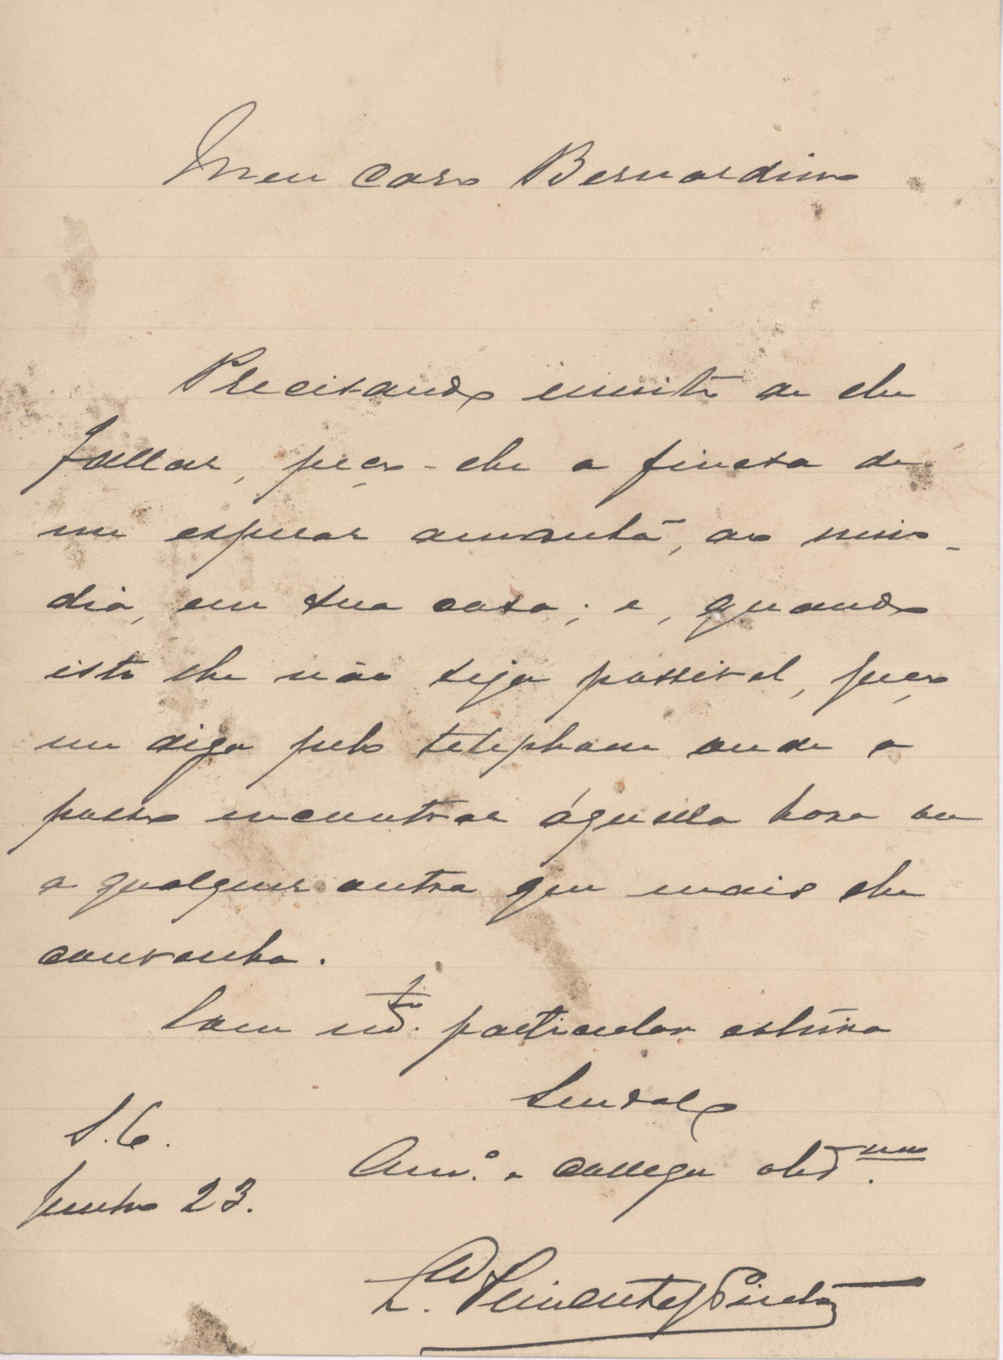 Meu caro Bernardino
Precisando muito de lhe
fallar, peço-lhe a fineza de
me esperar amanhã, ao meio-
dia, em sua casa; e, quando
isto lhe não seja possivel, peço
me diga pelo telephone onde o
posso encontrar áquella hora ou
a qualquer outra que mais lhe
convenha.
Com particular estima
Sou de V.
S. C.
Am.º e collega obd.mo
Junho 23.
Pimentel Pinto